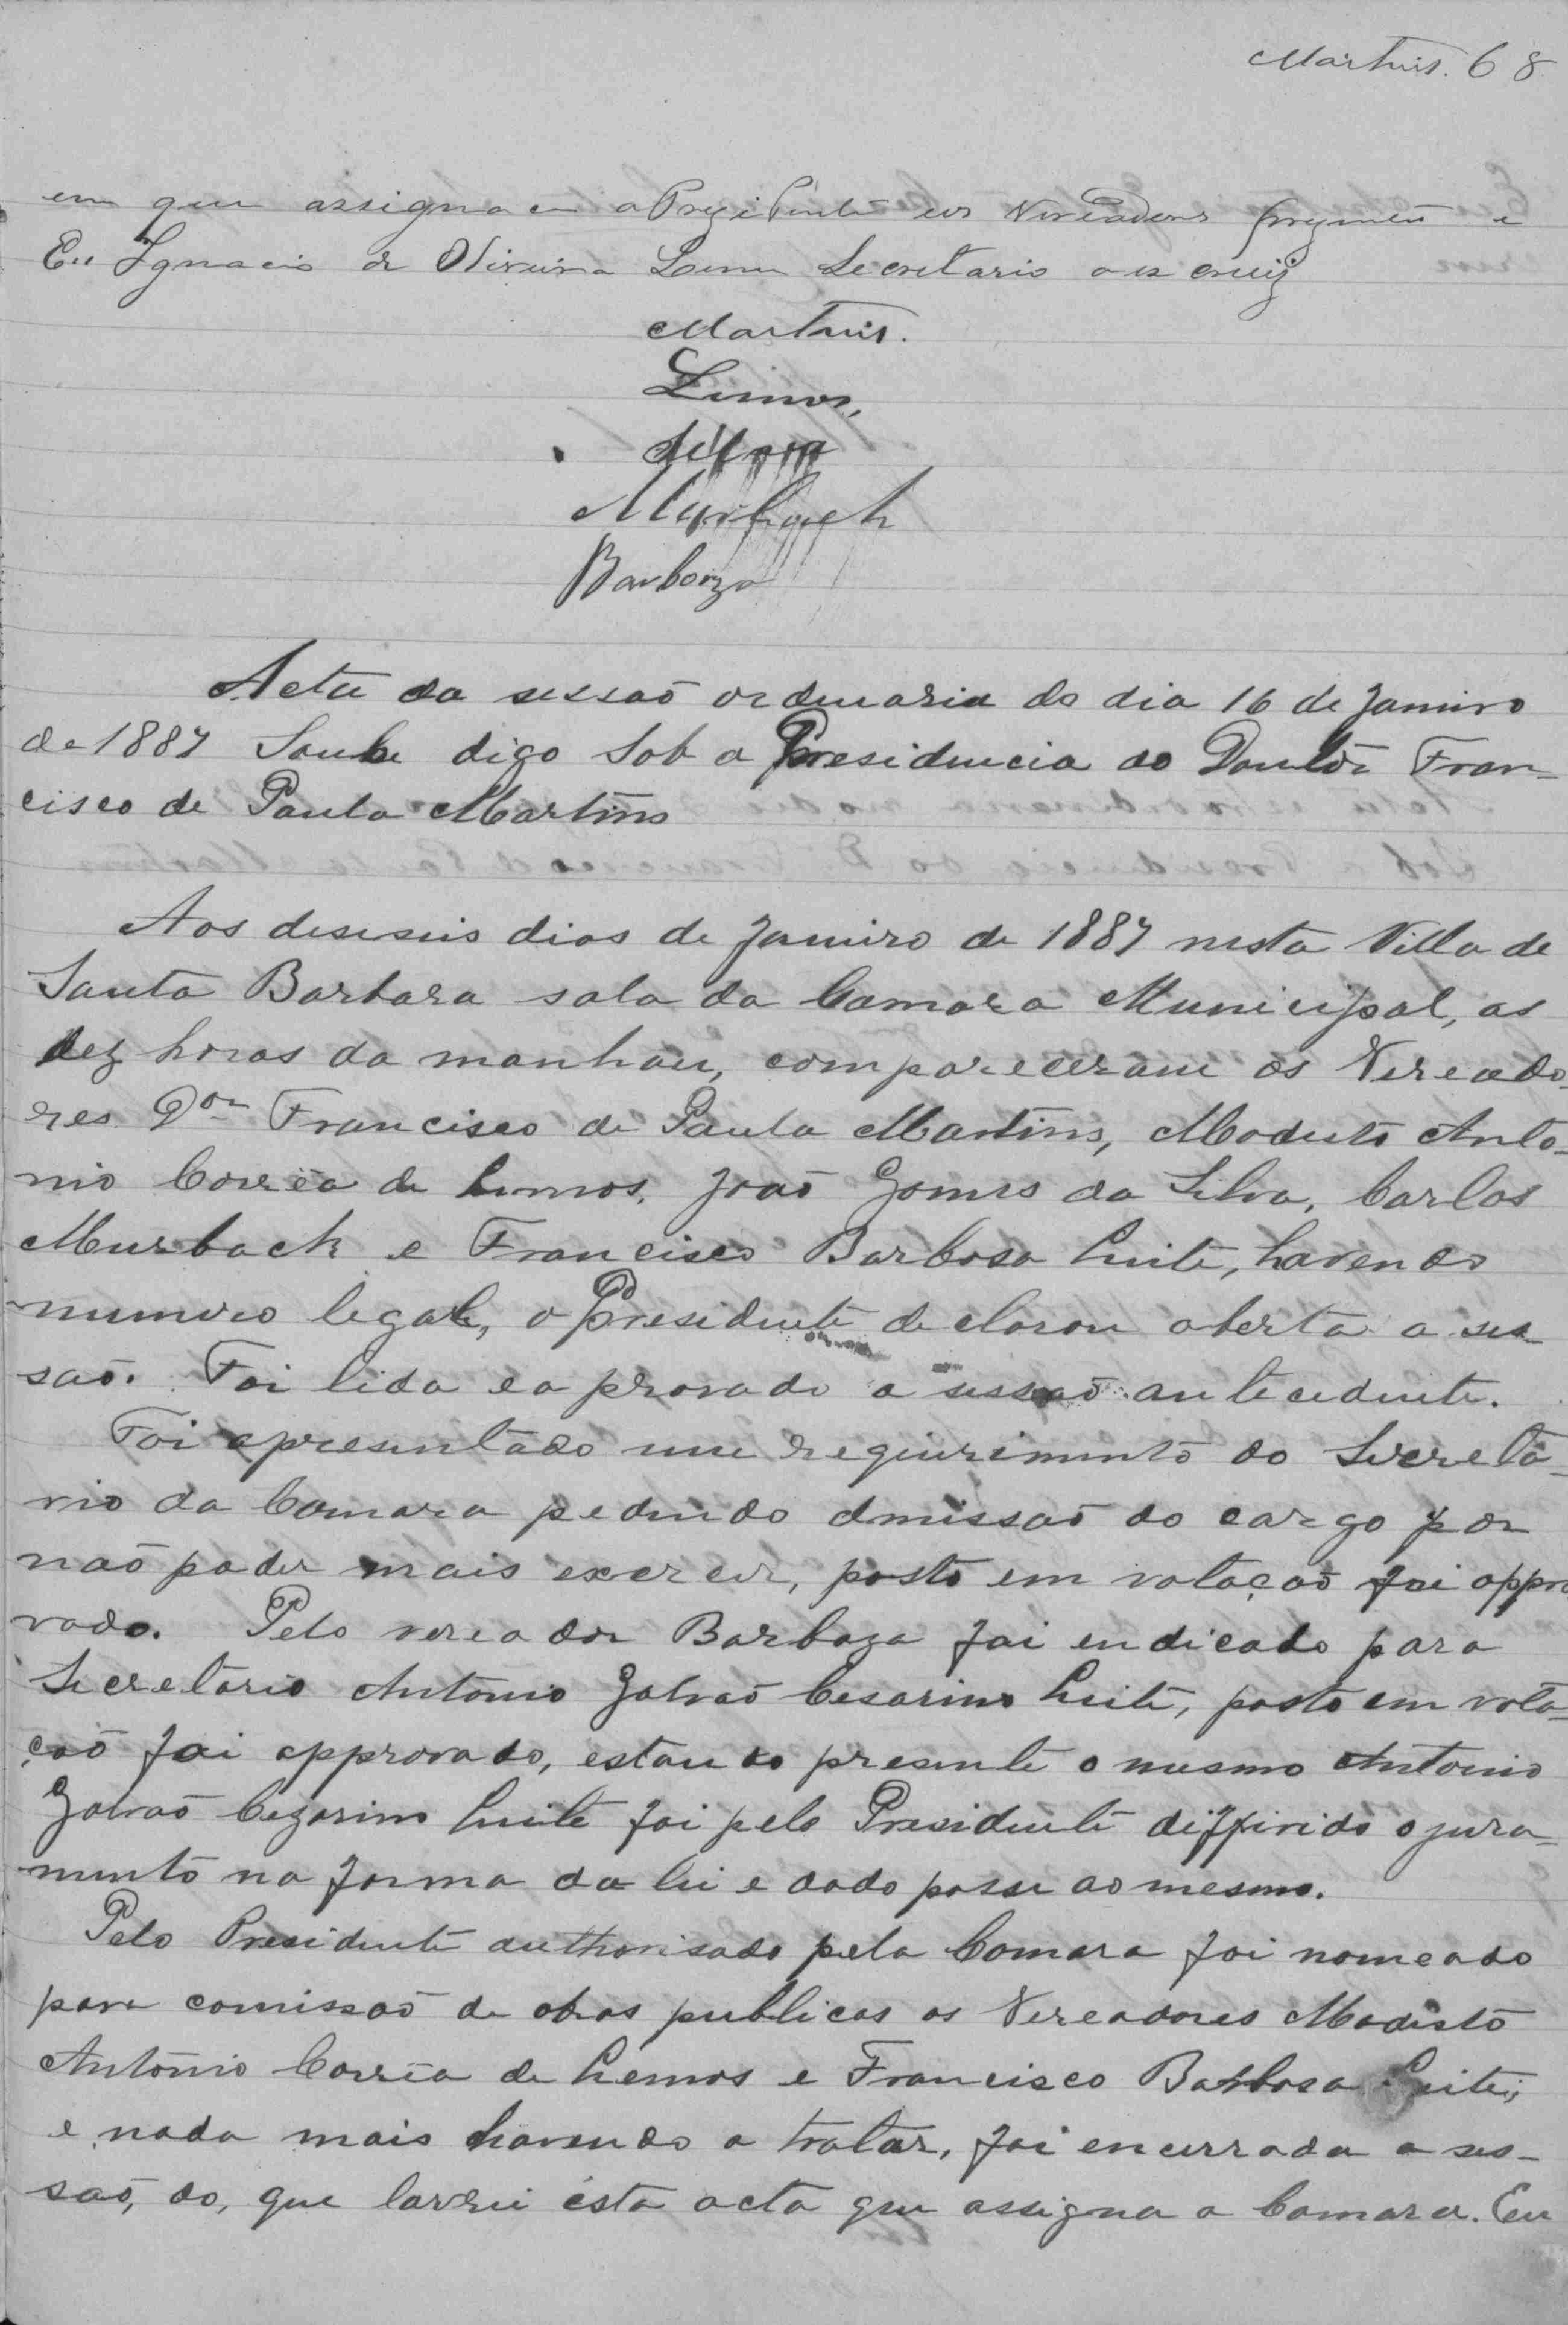 Martins. 68
em que assignam o Prezidente e os Vereadores prezentes e
Eu Ignacio de Oliveira Secretario o escreví
Martins.
Lemos,
Silva
Murbach
Barboza
Acta da sessaõ ordenaria do dia 16 de Janeiro
de 1887 digo Sob a Presidencia do Doutor Fran-
cisco de Paula Martins
Aos deseseis dias de Janeiro de 1887 nesta Villa de
Santa Barbara sala da Camara Municipal, as
dez horas da manhan, compareceram os Vereado-
res Dor Francisco de Paula Martins, Modesto Anto-
nio Corrêa de Lemos, Joaõ Gomes da Silva, Carlos
Murback e Francisco Barbosa Leite, havendo
numero legal, o Presidente declarou aberta a ses-
saõ. Foi lida e aprovado a sessaõ antecedente.
Foi apresentado um requerimento do Secreta-
rio da Camara pedindo dmissaõ do cargo por
naõ poder mais exercer, posto em votaçaõ foi appro
vado. Pelo vereador Barboza foi endicado para
Secretario Antonio Galvaõ Cesarino Leite, posto em vota-
çaõ foi approvado, estando presente o mesmo Antonio
Galvaõ Cezarino Leite foi pelo Presidente differido o jura-
mento na forma da lei e dado posse ao mesmo.
Pelo Presidente authorisado pela Camara foi nomeado
para comissaõ de obras publicas os Vereadores Modesto
Antonio Corrêa de Lemos e Francisco Barbosa Leite;
e nada mais havendo a tratar, foi encerrada a ses-
saõ, do, que lavrei ésta acta que assigna a Camara. Eu